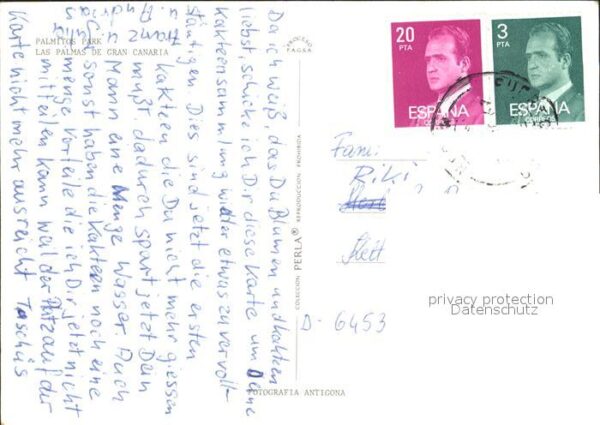 PALMITOS PARK
LAS PALMAS DE GRAN CANARIA
PROCESO
FAGRA
20
PTA
ESPAÑA
CORREOS
3
PTA
ESPAÑA
CORREOS
Da ich weiß das Du Blumen und Kakteen
liebst, schicke ich Dir diese Karte um Deine
Kakteensammlung wieder etwas zu vervoll-
ständigen. Dies sind jetzt die ersten
Kakteen die Du nicht mehr giessen
mußt. dadurch spart jetzt Dein
Mann eine Menge Wasser. Auch
sonst haben die Kakteen noch eine
menge Vorteile die ich Dir jetzt nicht
mitteilen kann weil der Platz auf der
Karte nicht mehr ausreicht Tschüs
COLECCION PERLA® REPRODUCCION PROHIBIDA
FOTOGRAFIA ANTIGONA
Fam.
Riki
D-6453
privacy protection
Datenschutz